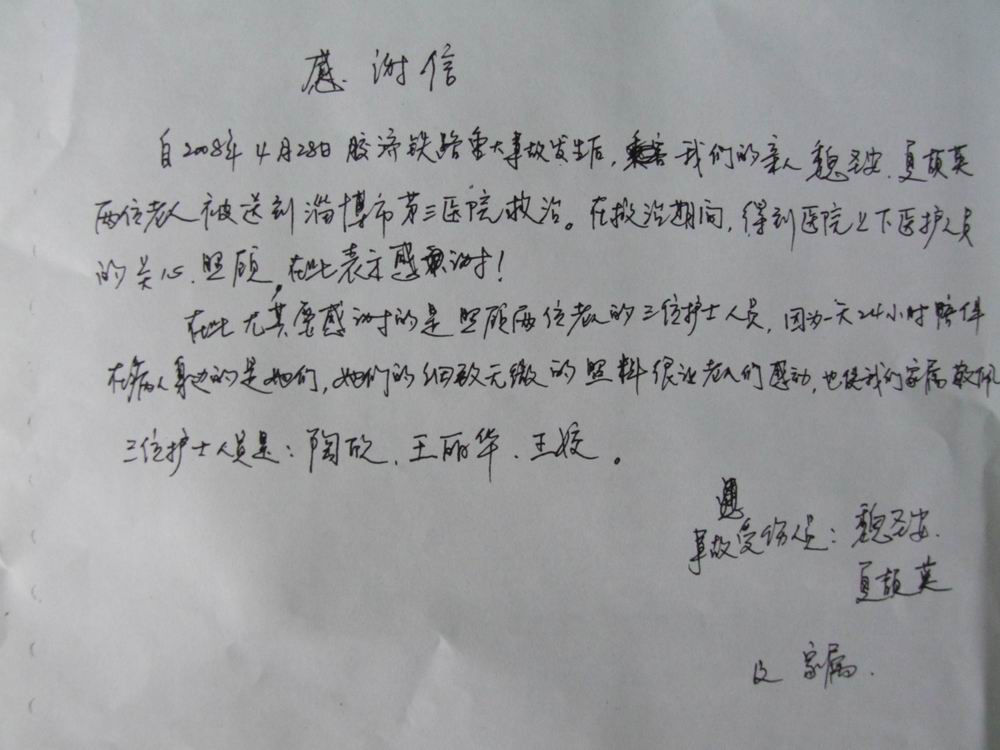 感谢信
自2008年4月28日胶济铁路重大事故发生后，我们的亲人魏圣安、夏颉英
两位老人被送到淄博市第三医院救治。在救治期间，得到医院上下医护人员
的关心、照顾，在此表示感谢！
在此尤其要感谢的是照顾两位老人的三位护士人员，因为一天24小时陪伴
在病人身边的是她们，她们的细致无微的照料很让老人们感动，也使我们家属敬佩
三位护士人员是：陶欣、王丽华、王姣。
事故受伤人员：魏圣安.
夏颉英
及家属.